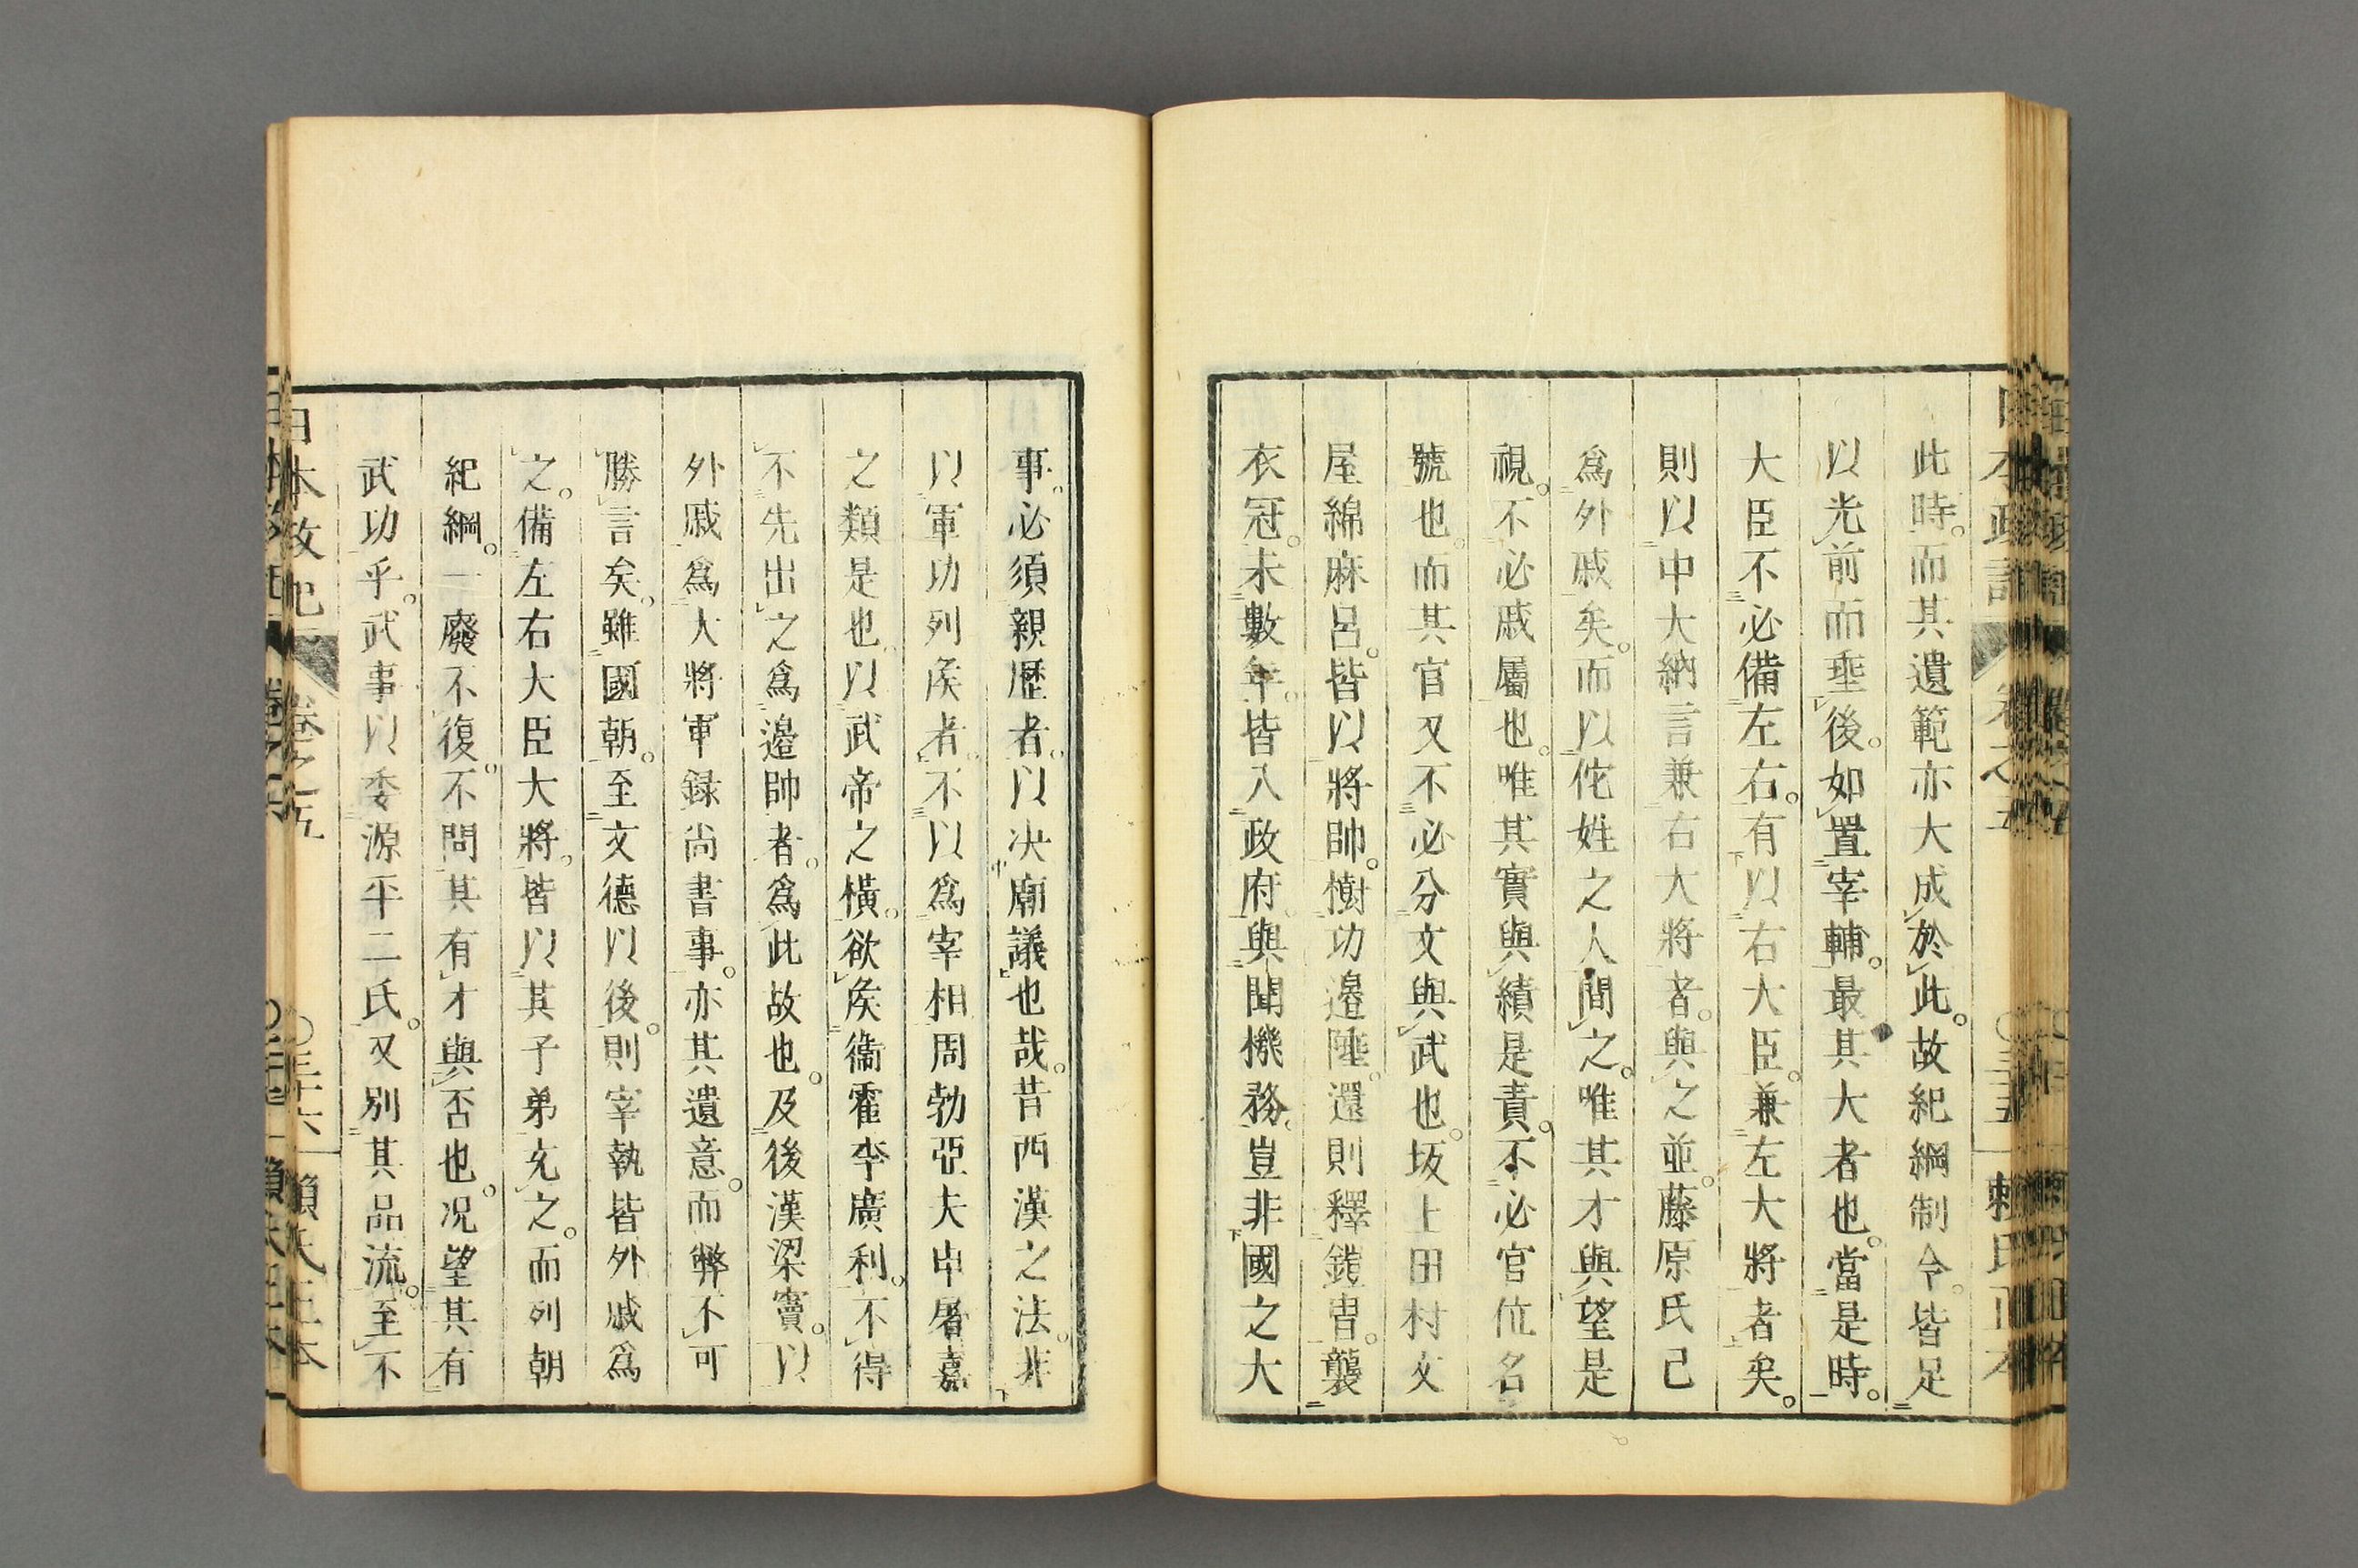 此時。而其遺範亦大成於此。故紀綱制令。皆足
以光前而垂後。如置宰輔。最其大者也。當是時。
大臣不必備左右。有以右大臣。兼左大將者矣。
則以中大納言兼右大將者。與之並。藤原氏已
爲外戚矣。而以佗姓之人間之。唯其才與望是
視。不必戚屬也。唯其實與績是責。不必官位名
號也。而其官又不必分文與武也。坂上田村文
屋綿麻呂。皆以將帥。樹功邉陲。還則釋鎧冑。襲
衣冠。未數年。皆入政府。與聞機務。豈非國之大
事。必須親歴者。以决廟議也哉。昔西漢之法。非
以軍功列矦者。不以爲宰相。周勃亞夫申屠嘉
之類是也。以武帝之橫。欲矦衞霍李廣利。不得
不先出之爲邉帥者。爲此故也。及後漢梁竇。以
外戚爲大將軍録尚書事。亦其遺意。而弊不可
勝言矣。雖國朝。至文德以後。則宰執皆外戚爲
之。備左右大臣大將。皆以其子弟充之。而列朝
紀綱。一廢不復。不問其有才與否也。况望其有
武功乎。武事以委源平二氏。又別其品流。至不
日本政記
卷之五